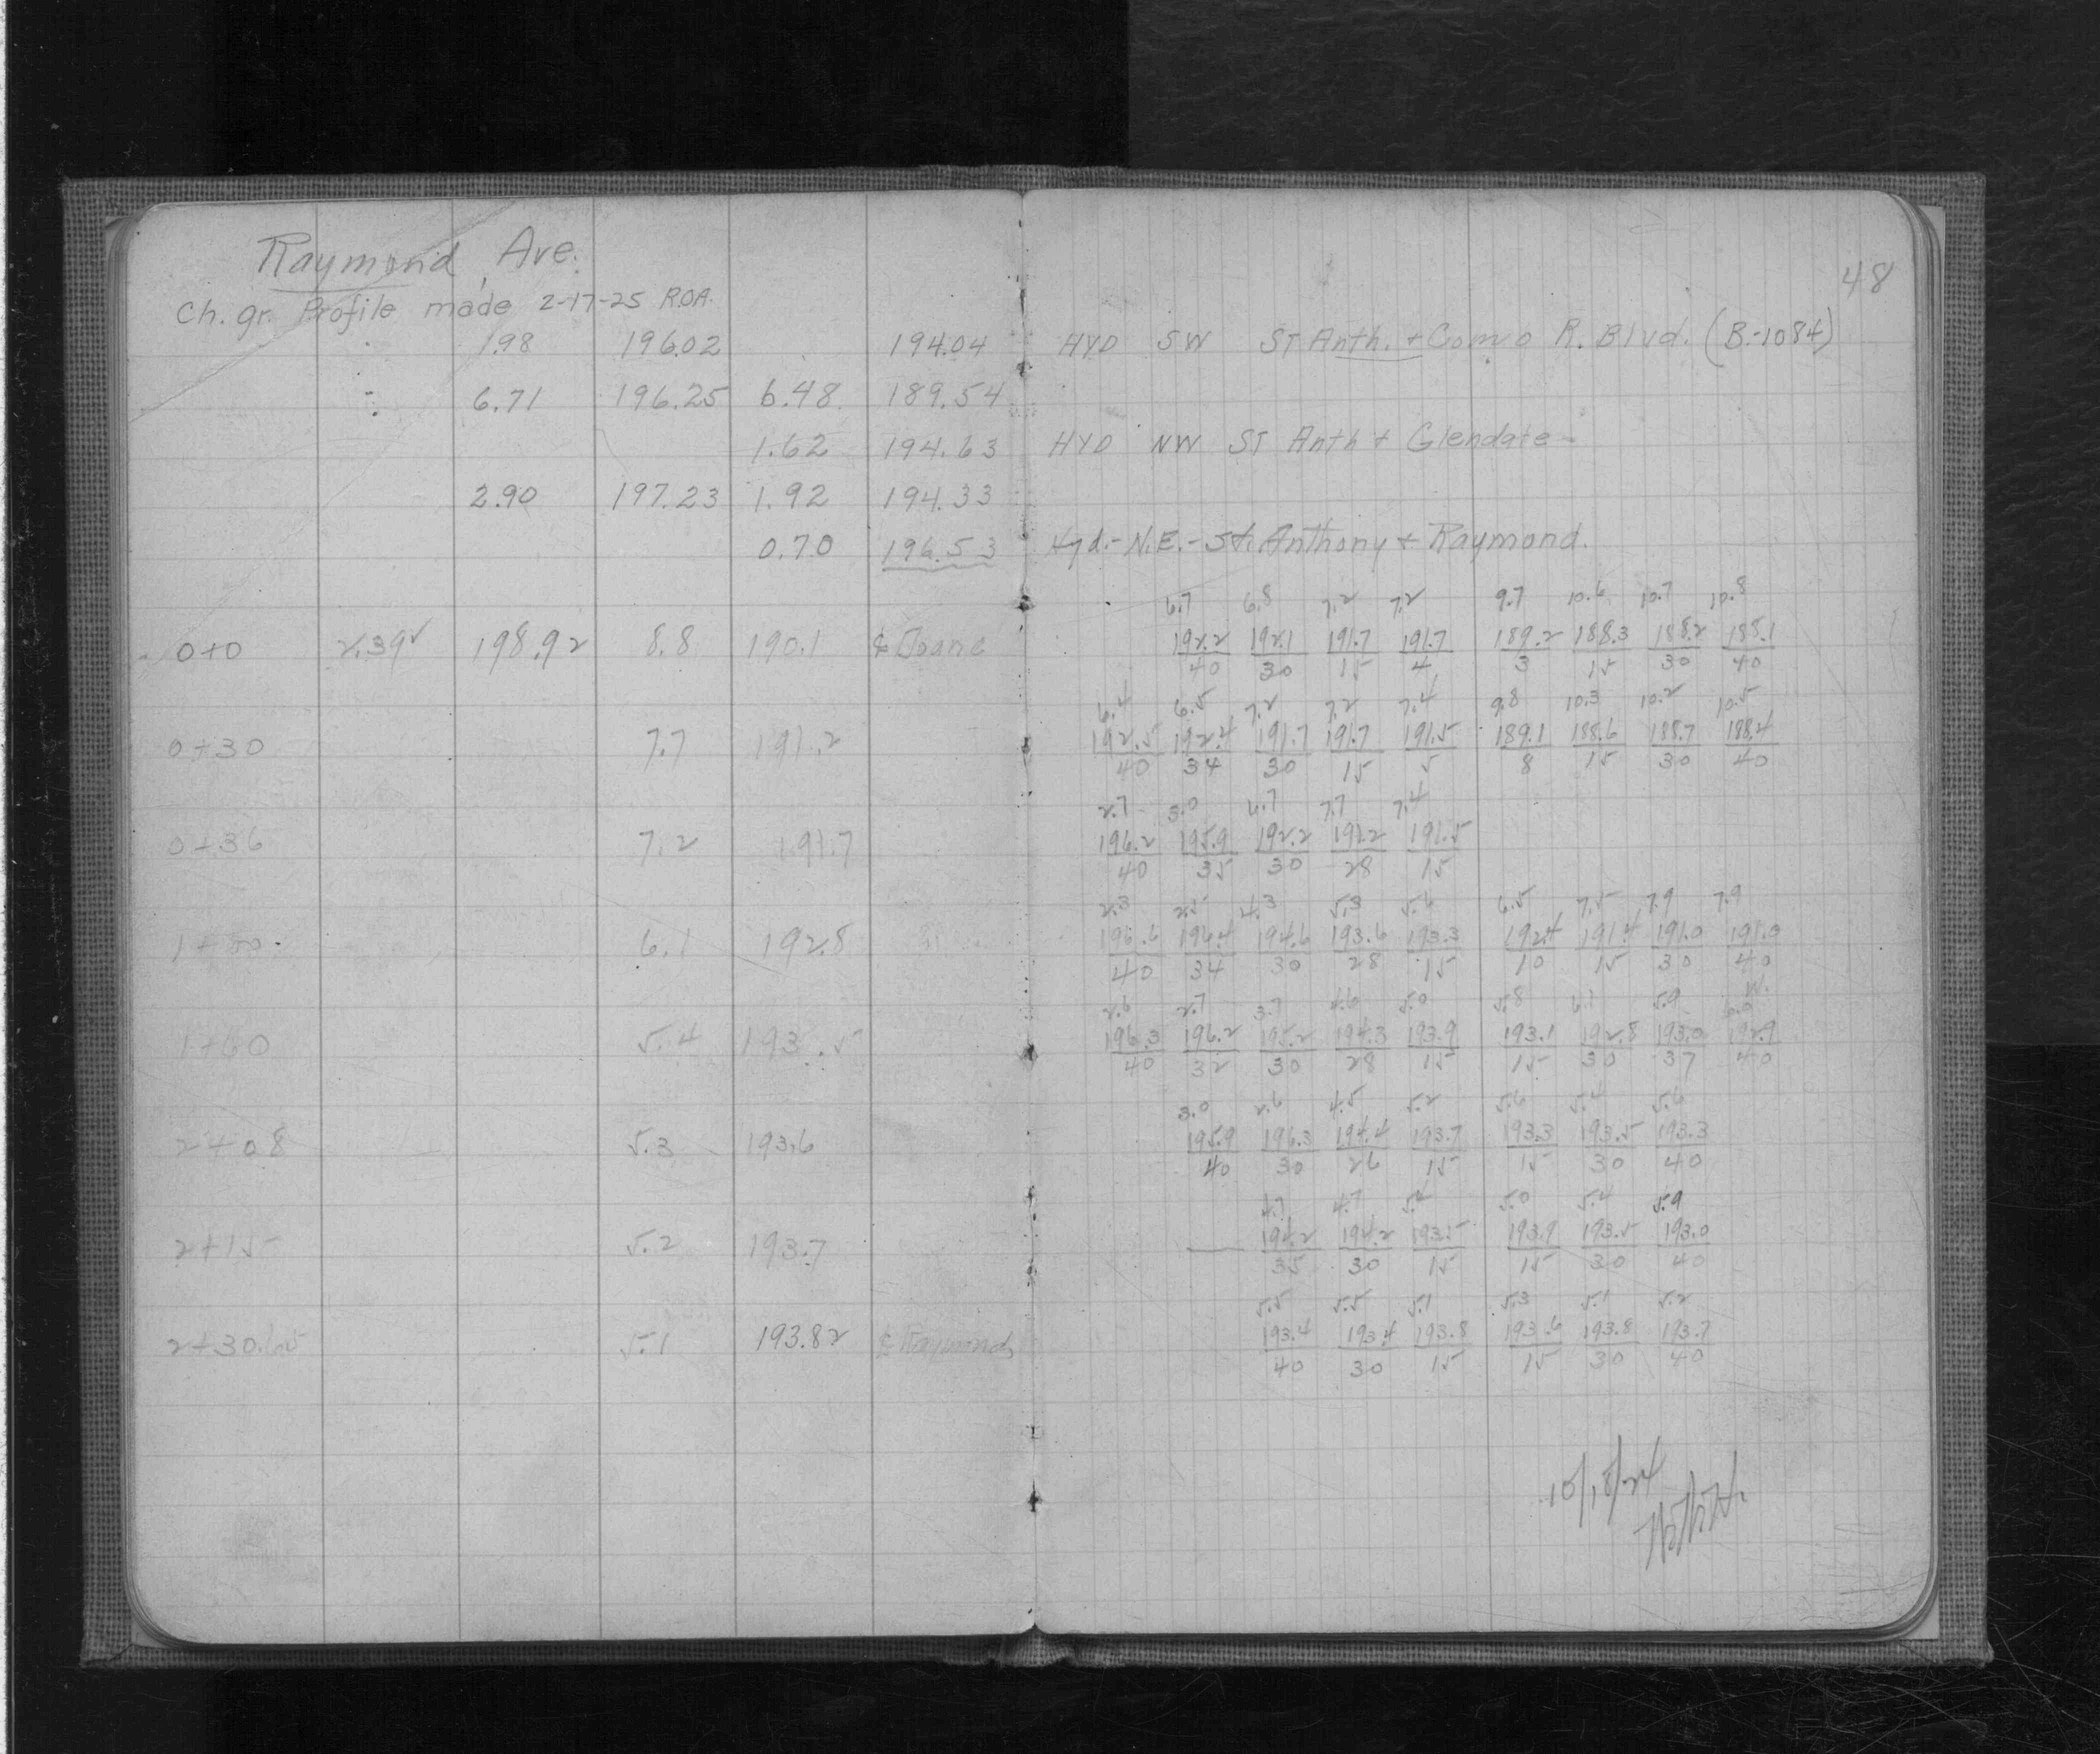 48
Raymond Ave.
Ch. gr. Profile made 2-17-25 R.O.A.
1.98 196.02 194.04 HYD SW ST Anth. + Como R. Blvd. (B.-1084)
6.71 196.25 6.48 189.54
1.62 194.63 HYD NW ST Anth + Glendale
2.90 197.23 1.92 194.33
0.70 196.53 Hyd.-N.E.-St. Anthony + Raymond.
6.7 6.8 7.2 7.2 9.7 10.6 10.7 10.8
0+0 2.39 198.92 8.8 190.1 ℄ Doane 192.2 192.1 191.7 191.7 189.2 188.3 188.2 188.1
40 30 15 4 3 15 30 40
6.4 6.5 7.2 7.2 7.4 9.8 10.3 10.2 10.5
0+30 7.7 191.2 192.5 192.4 191.7 191.7 191.5 189.1 188.6 188.7 188.4
40 34 30 15 5 8 15 30 40
2.7 3.0 6.7 7.7 7.4
0+36 7.2 191.7 196.2 195.9 192.2 191.2 191.5
40 35 30 28 15
2.3 2.5 4.3 5.3 5.6 6.5 7.5 7.9 7.9
6.1 192.8 196.6 196.4 194.6 193.6 193.3 192.4 191.4 191.0 191.0
40 34 30 28 15 10 15 30 40
W.
2.6 2.7 3.7 4.6 5.0 5.8 6.1 5.9 6.0
1+60 5.4 193.5 196.3 196.2 195.2 194.3 193.9 193.1 192.8 193.0 192.9
40 32 30 28 15 15 30 37 40
3.0 2.6 4.5 5.2 5.6 5.4 5.6
2+08 5.3 193.6 195.9 196.3 194.4 193.7 193.3 193.5 193.3
40 30 26 15 15 30 40
4.7 4.7 5.4 5.0 5.4 5.9
2+15 5.2 193.7 194.2 194.2 193.5 193.9 193.5 193.0
35 30 15 15 30 40
5.5 5.5 5.1 5.3 5.1 5.2
2+30.65 5.1 193.82 ℄ Raymond 193.4 193.4 193.8 193.6 193.8 193.7
40 30 15 15 30 40
10/18/24